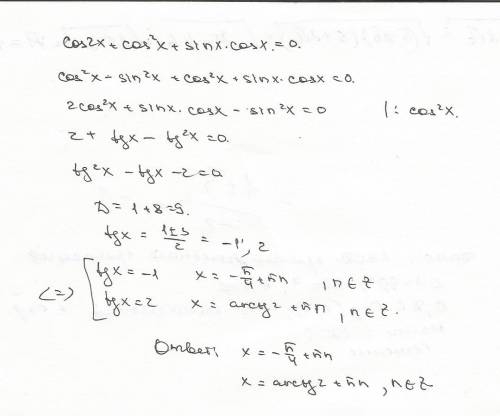 cos2x + cos²x + sinx·cosx = 0.
cos²x - sin²x + cos²x + sinx·cosx = 0.
2cos²x + sinx·cosx - sin²x = 0 |: cos²x.
2 + tgx - tg²x = 0.
tg²x - tgx - 2 = 0
D = 1 + 8 = 9.
tgx = (1±3)/2 = -1; 2
<=> [ tgx = -1 x = -π/4 + πn , n∈Z
tgx = 2 x = arctg2 + πn , n∈Z.
Ответ: x = -π/4 + πn
x = arctg2 + πn , n∈Z